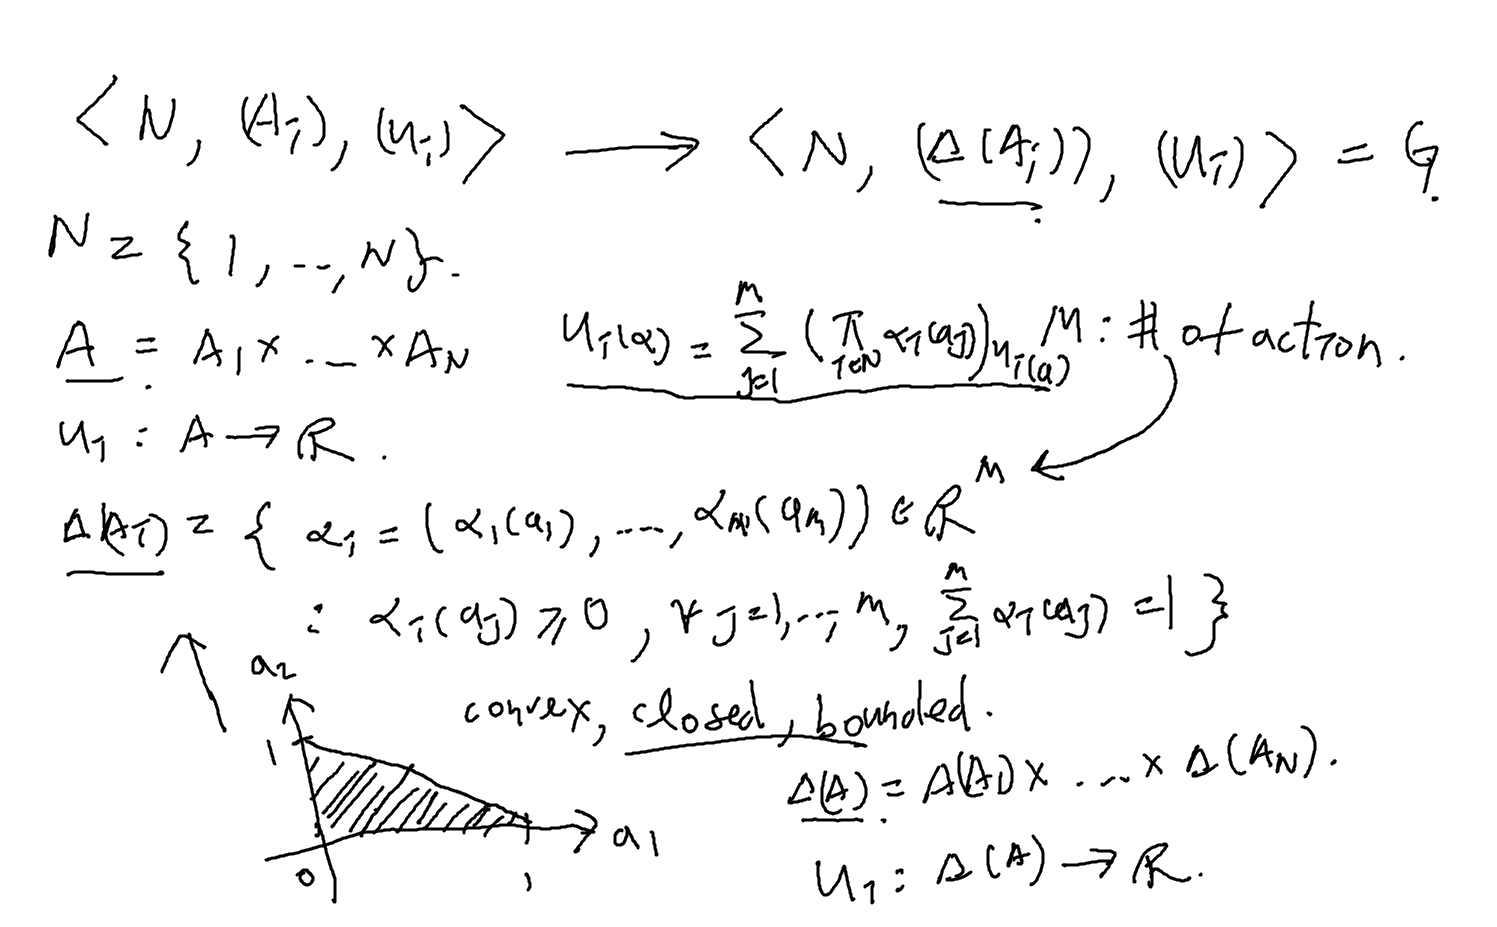 ⟨ N, (A_i), (u_i) ⟩ ⟶ ⟨ N, (Δ(A_i)), (U_i) ⟩ = G.
N = { 1, ..., N }.
A = A_1 × ... × A_N
U_i(α) = Σ_{j=1}^{m} ( π_{i∈N} α_i(a_j) ) u_i(a) M : # of action.
u_i : A → R.
Δ(A_i) = { α_i = ( α_1(a_1), ...., α_m(a_m) ) ∈ R^m
: α_i(a_j) ≥ 0, ∀ j=1,..., m, Σ_{j=1}^{m} α_i(a_j) = 1 }
convex, closed, bounded.
a_2
1
0
1
a_1
Δ(A) = Δ(A_1) × .... × Δ(A_N).
U_i : Δ(A) → R.